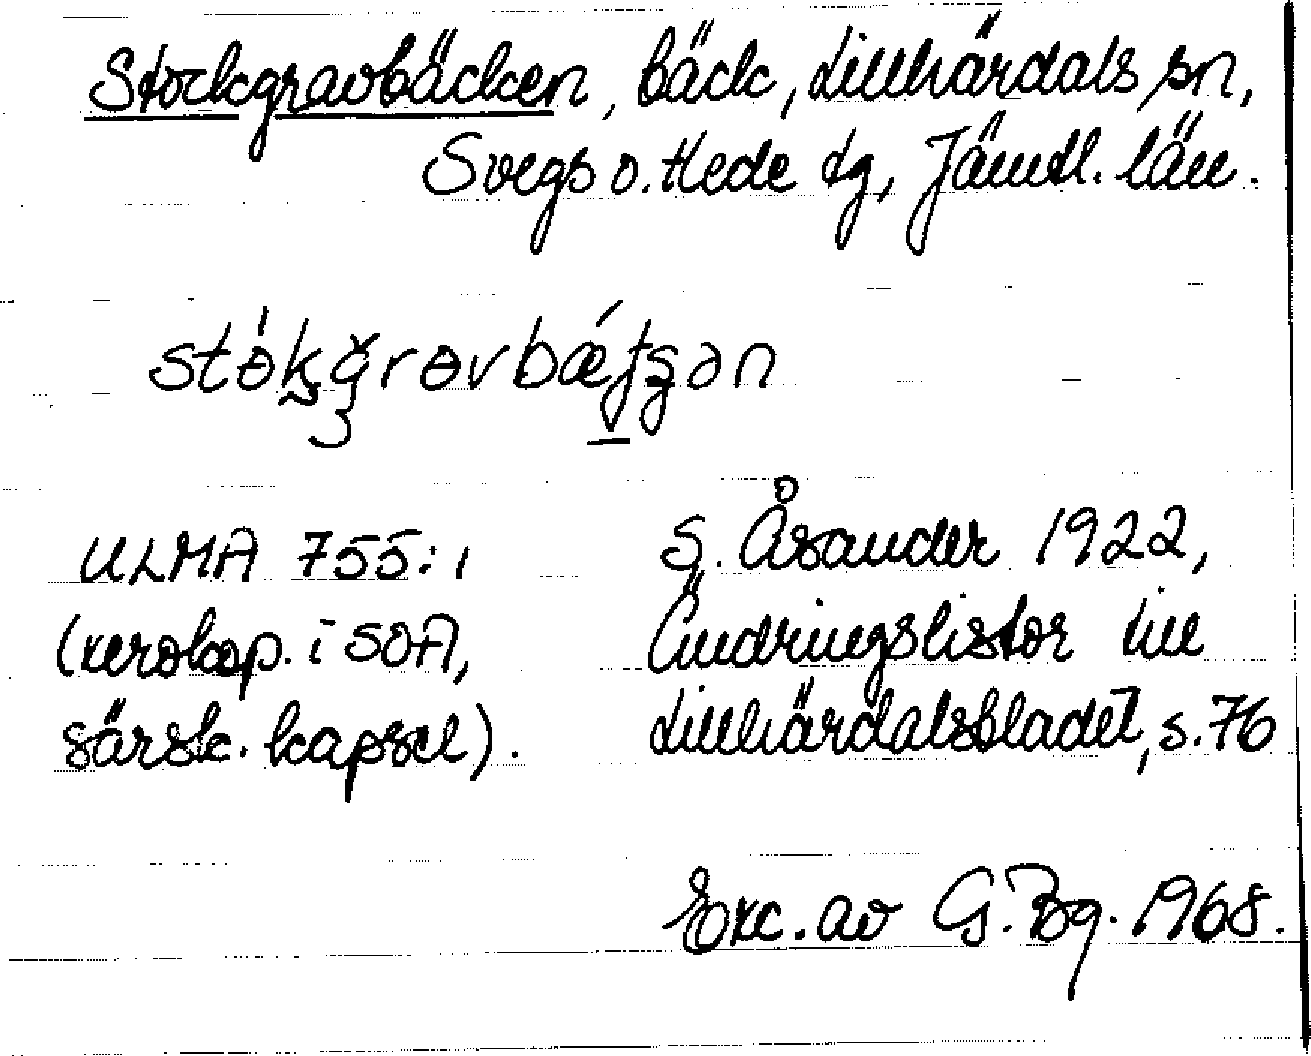 Stockgravbäcken, bäck, Lillhärdals sn,
Svegs o. Hede tg, Jämtl. län.
stɵ́kğrɵvbǽʈʂən
ULMA 755:1
(xerokop. i SOA,
särsk. kapsel).
S. Åsander 1922,
Ändringslistor till
Lillhärdalsbladet, s. 76
Exc. av G. Bg. 1968.